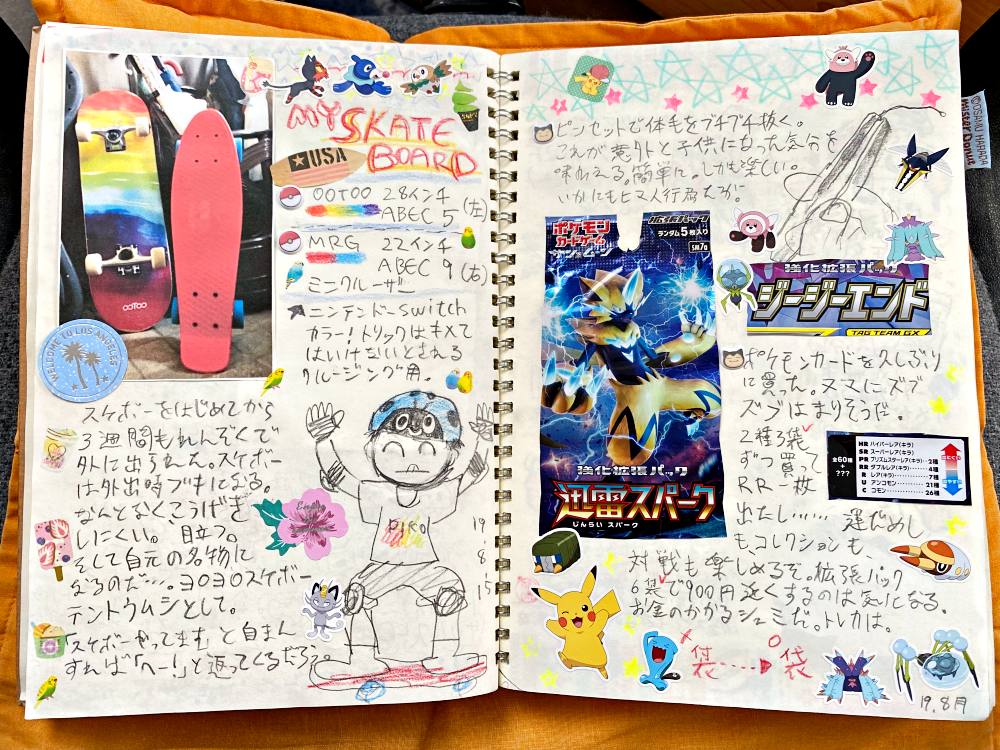 MY SKATE
BOARD
USA
OOTOO 28インチ
ABEC 5 (左)
MRG 22インチ
ABEC 9 (右)
ミニクルーザー
ニンテンドーSwitch
カラー!トリックはキメて
はいけないとされる
クルージング用。
OOTOO
WELCOME TO LOS ANGELES
スケボーをはじめてから
3週間もれんぞくで
外に出られた。スケボー
は外出時ブキになる。
なんとなくこうげき
しにくい。目立つ。
そして自元の名物に
なるのだ…。ヨロヨロスケボー
テントウムシとして。
「スケボーやってます」と自まん
すれば「へー!」と返ってくるだろう。
19
8
15
ピンセットで体毛をプチプチ抜く。
これが意外と子供になった気分を
味わえる。簡単に。しかも楽しい。
いかにもヒマ人行為だが。
©OSAMU HARADA
Mister Donut
ポケモン
カードゲーム
サン&ムーン
拡張パック
ランダム5枚入り
SM7a
強化拡張パック
迅雷スパーク
じんらい スパーク
強化拡張パック
ジージーエンド
TAG TEAM GX
ポケモンカードを久しぶり
に買った。ヌマにズブ
ズブはまりそうだ。
2種3袋
ずつ買って
RR一枚
出たし…… 運だめし
も、コレクションも、
対戦も楽しめるぞ。拡張パック
6袋で900円近くするのは気になる。
お金のかかるシュミだ。トレカは。
全60種
+???
HR ハイパーレア(キラ)
SR スーパーレア(キラ)
PR プリズムスターレア(キラ)…2種
RR ダブルレア(キラ)…4種
R レア(キラ)…7種
U アンコモン…21種
C コモン…26種
袋
19.8月